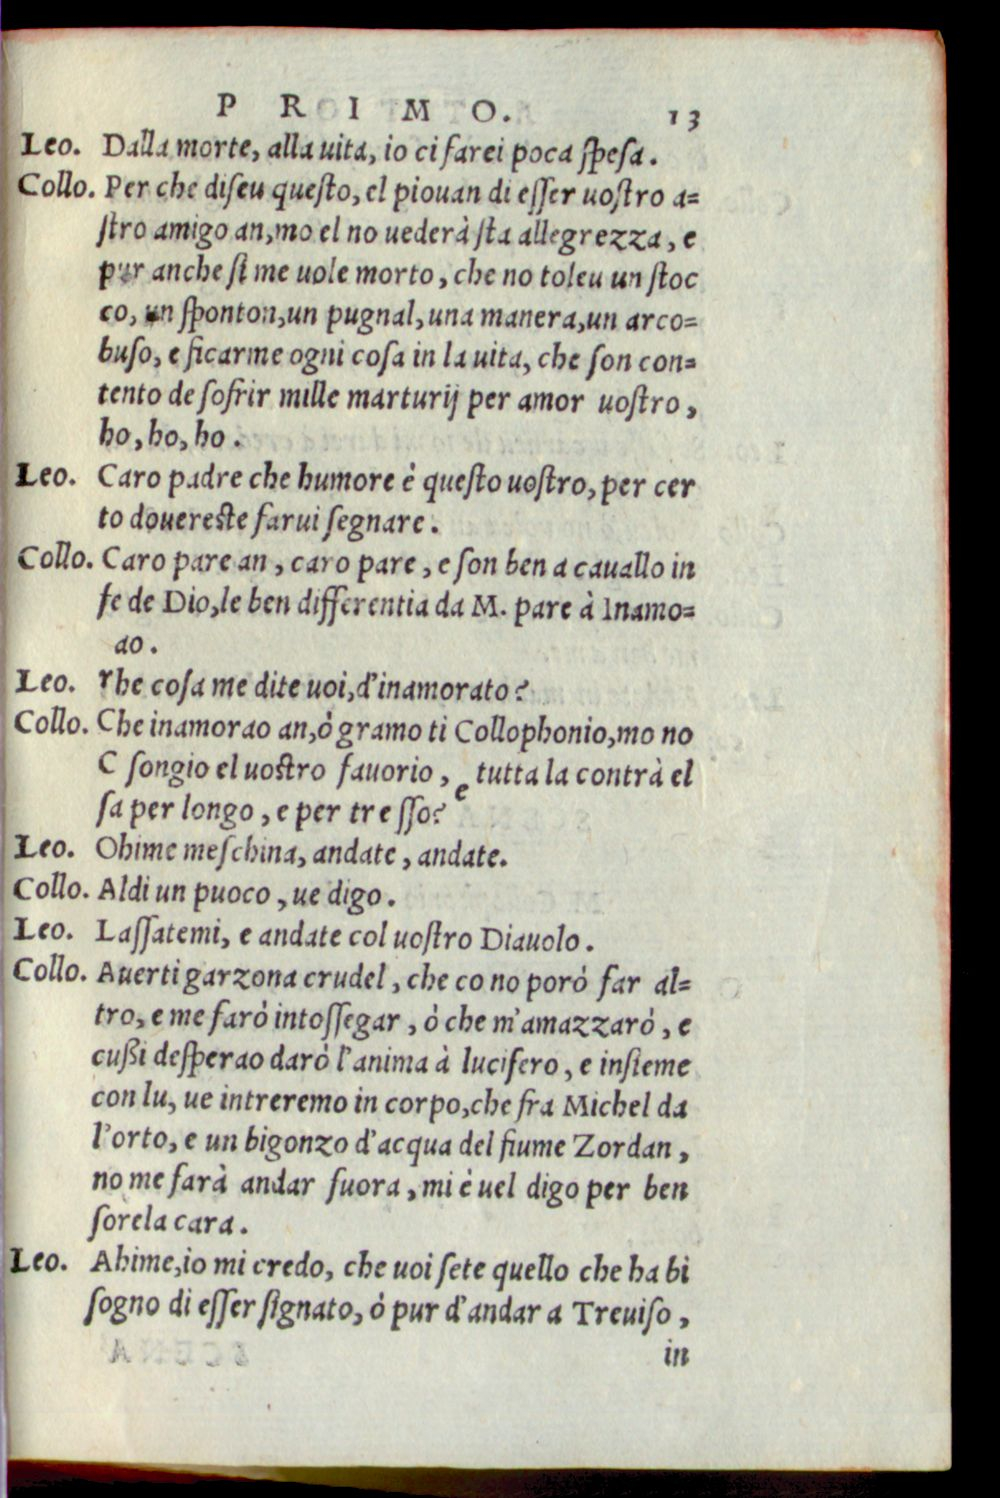 PRIMO. 13
Leo. Dalla morte, alla uita, io ci farei poca ſpeſa.
Collo. Per che diſeu queſto, el piouan di eſſer uoſtro a=
ſtro amigo an, mo el no uederà ſta allegrezza, e
pur anche ſi me uole morto, che no toleu un ſtoc
co, un ſponton, un pugnal, una manera, un arco=
buſo, e ficarme ogni coſa in la uita, che ſon con=
tento de ſofrir mille marturij per amor uoſtro,
ho, ho, ho.
Leo. Caro padre che humore è queſto uoſtro, per cer
to douereſte farui ſegnare.
Collo. Caro pare an, caro pare, e ſon ben a cauallo in
fe de Dio, le ben differentia da M. pare à Inamo=
ao.
Leo. rhe coſa me dite uoi, d'inamorato?
Collo. Che inamorao an, ò gramo ti Collophonio, mo no
C ſongio el uoſtro fauorio, e tutta la contrà el
ſa per longo, e per treſſo?
Leo. Ohime meſchina, andate, andate.
Collo. Aldi un puoco, ue digo.
Leo. Laſſatemi, e andate col uoſtro Diauolo.
Collo. Auerti garzona crudel, che co no porò far al=
tro, e me farò intoſſegar, ò che m'amazzarò, e
cußi deſperao darò l'anima à lucifero, e inſieme
con lu, ue intreremo in corpo, che fra Michel da
l'orto, e un bigonzo d'acqua del fiume Zordan,
no me farà andar fuora, mi è uel digo per ben
ſorela cara.
Leo. Ahime, io mi credo, che uoi ſete quello che ha bi
ſogno di eſſer ſignato, ò pur d'andar a Treuiſo,
in